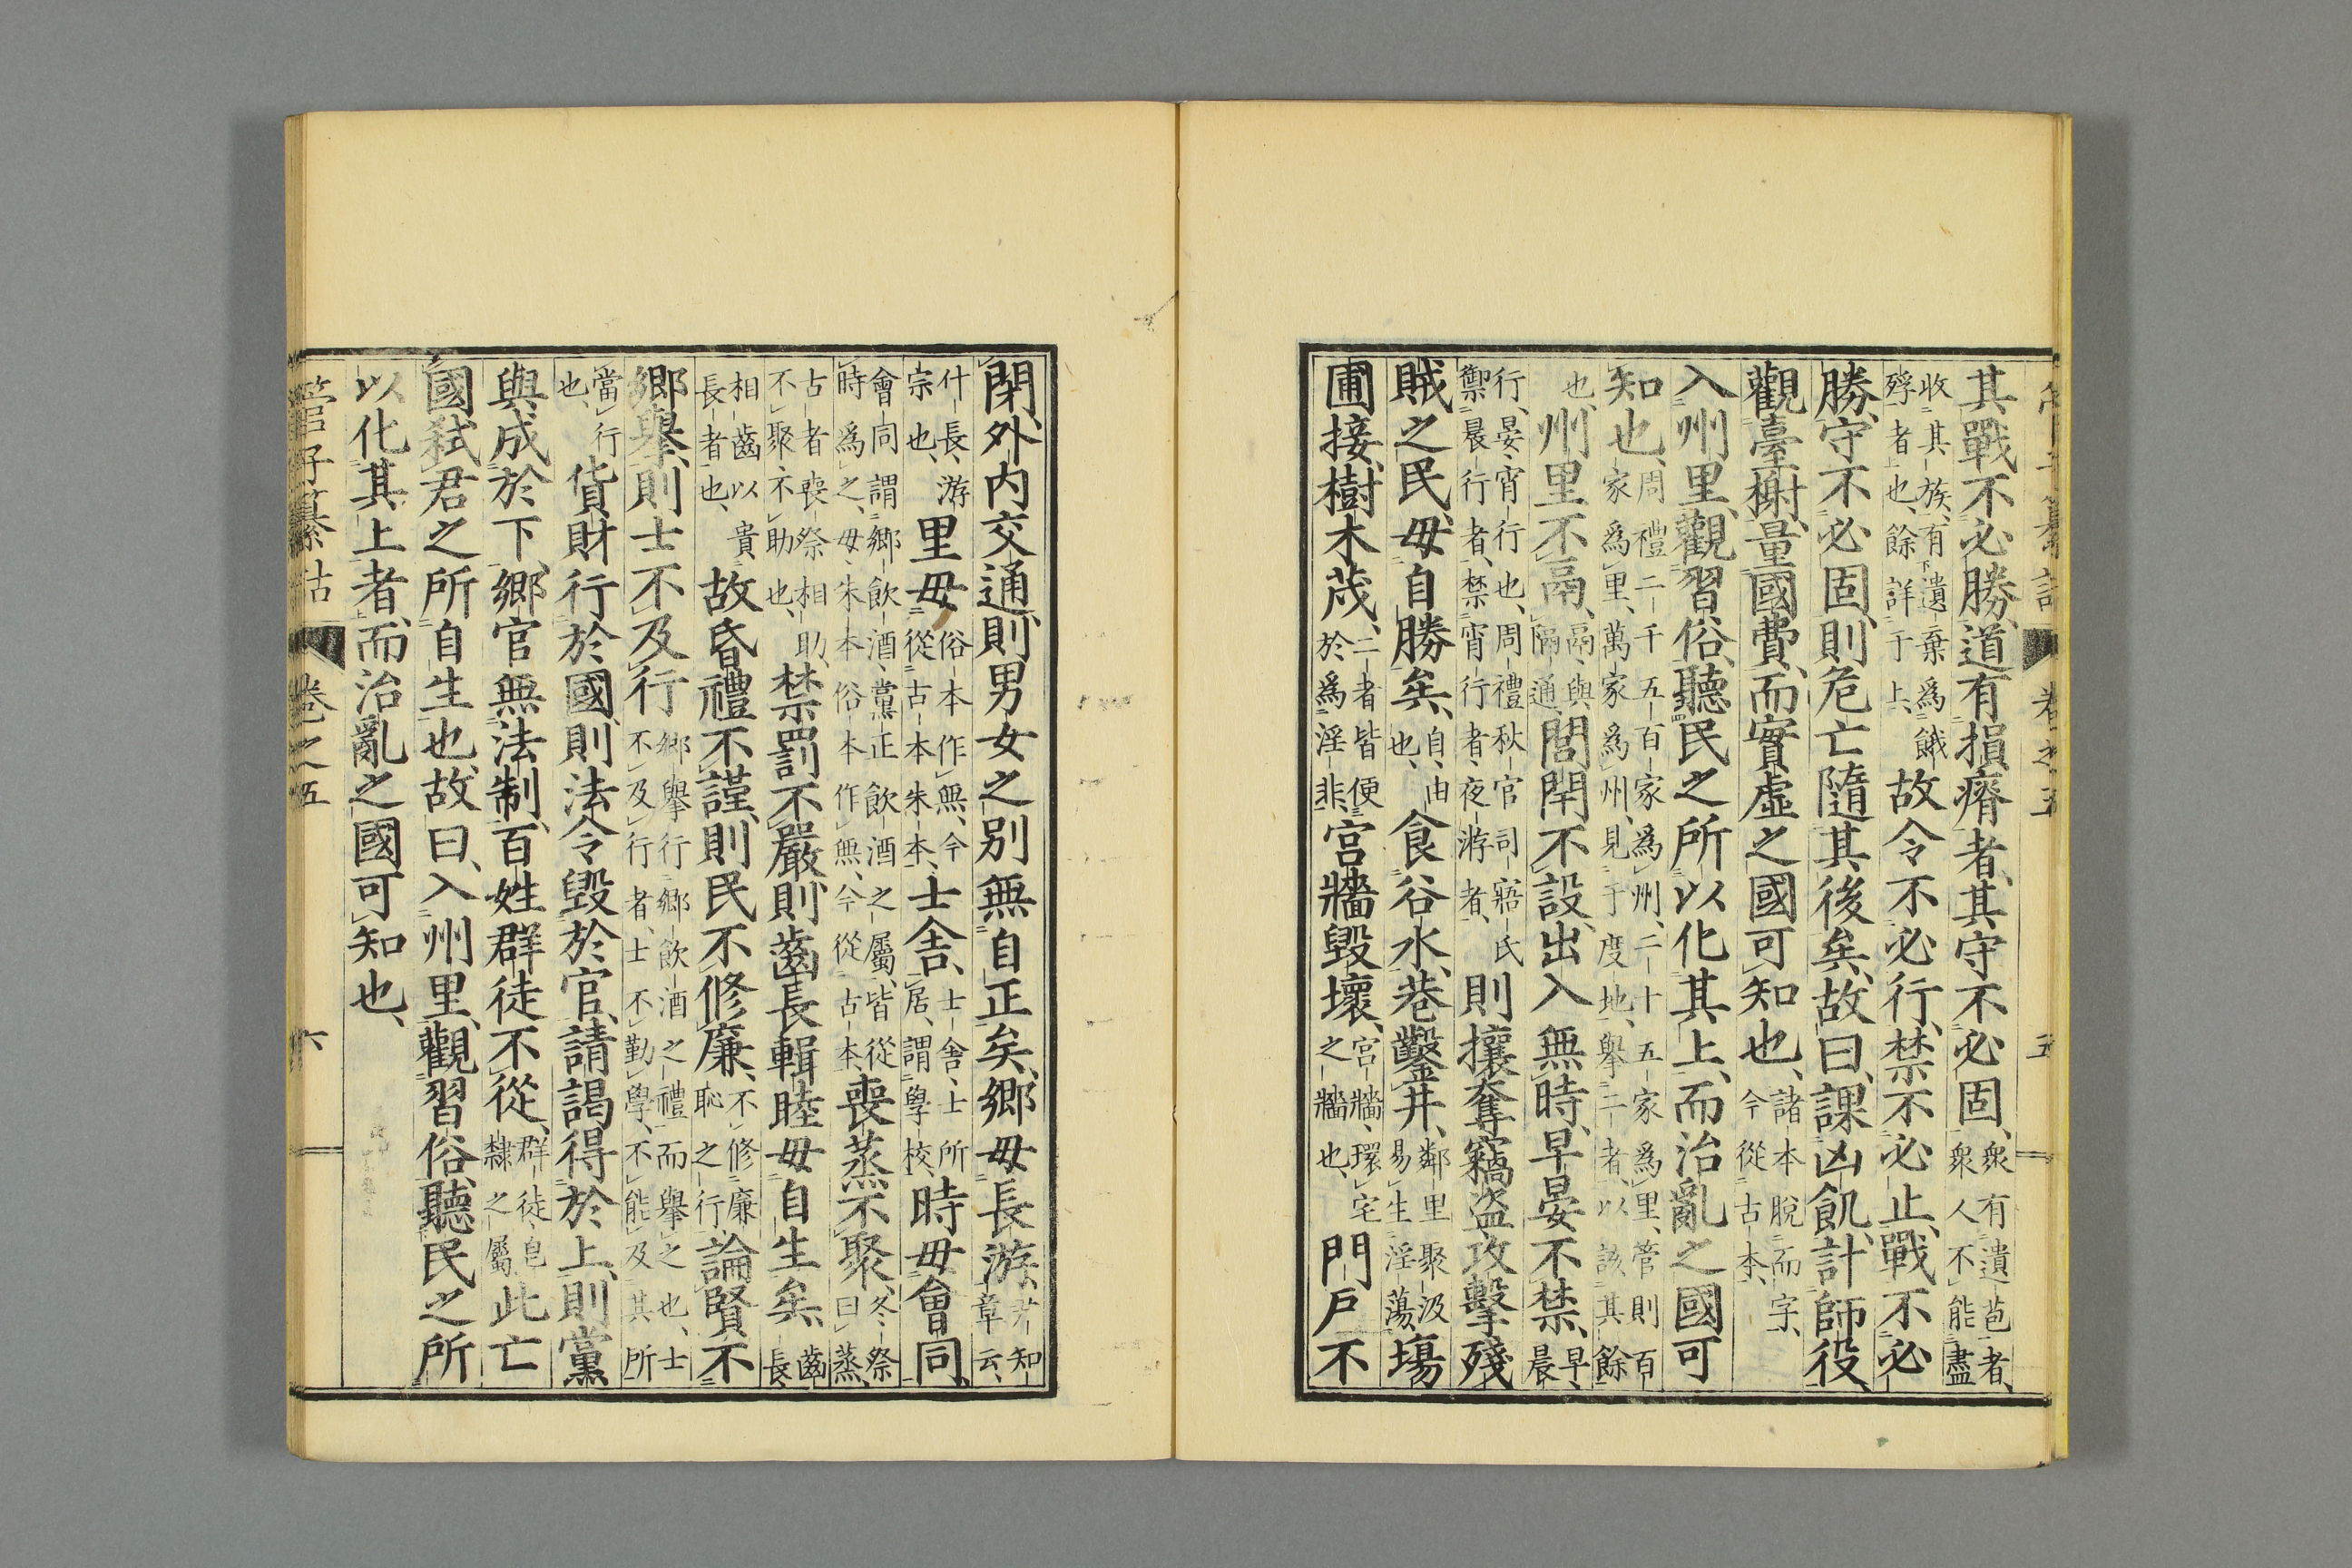 其戰不必勝、道有損瘠者、其守不必固、衆有遺苞者、衆人不能盡
收其族、有遺棄爲餓殍者也、餘詳于上、故令不必行、禁不必止、戰不必
勝、守不必固、則危亡隨其後矣、故曰、課凶飢、計師役、
觀臺榭、量國費、而實虛之國可知也、諸本脫而字、今從古本、
入州里、觀習俗、聽民之所以化其上、而治亂之國可
知也、周禮二千五百家爲州、二十五家爲里、管則百家爲里、萬家爲州、見于度地、擧二者、以該其餘
也、州里不鬲、鬲、與隔通、閭閈不設、出入無時、早晏不禁、早、晨
行、晏、宵行也、周禮秋官司寤氏禦晨行者、禁宵行者、夜游者、則攘奪竊盜、攻擊殘
賊之民、毋自勝矣、自、由也、食谷水、巷鑿井、鄰里聚汲易生淫蕩、場
圃接、樹木茂、二者皆便於爲淫非、宮牆毀壞、宮牆、環宅之牆也、門戶不
卷之五
五
閉、外內交通、則男女之別無自正矣、鄉毋長游、君知章云、
什長、游宗也、里毋俗本作無、今從古本朱本、士舍、士舍、士所居、謂學校、時毋會同、
會同謂鄉飲酒、黨正飲酒之屬、皆從時爲之、毋、朱本俗本作無、今從古本、喪蒸不聚、冬祭曰蒸、
古者喪祭相助、不聚、不助也、禁罰不嚴、則齒長輯睦毋自生矣、齒長、
相齒以貴長者也、故昏禮不謹、則民不修廉、不修廉恥之行、論賢不
鄉擧、則士不及行、鄉擧行鄉飲酒之禮而擧之也、士不及行者、士不勤學、不能及其所
當行也、貨財行於國、則法令毀於官、請謁得於上、則黨
與成於下、鄉官無法制、百姓群徒不從、群徒、皂隸之屬、此亡
國弑君之所自生也、故曰、入州里、觀習俗、聽民之所
以化其上者、而治亂之國可知也、
管子纂詁
卷之五
六